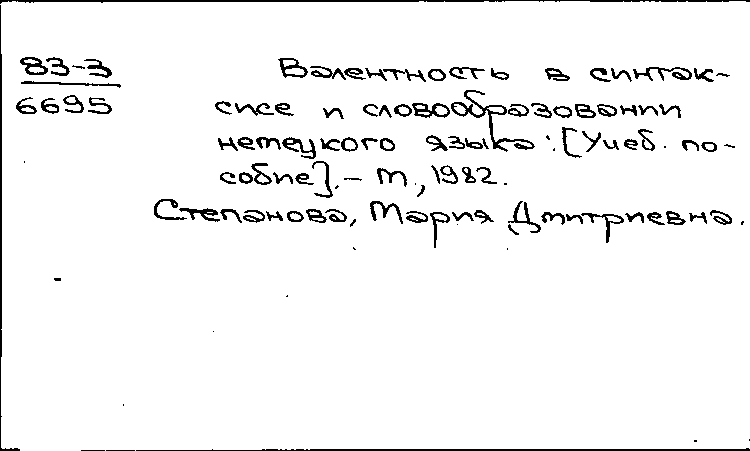 83-3
6695
Валентность в синтак-
сисе и словообразовании
немецкого языка: [Учеб. по-
собие]. – М., 1982.
Степанова, Мария Дмитриевна.